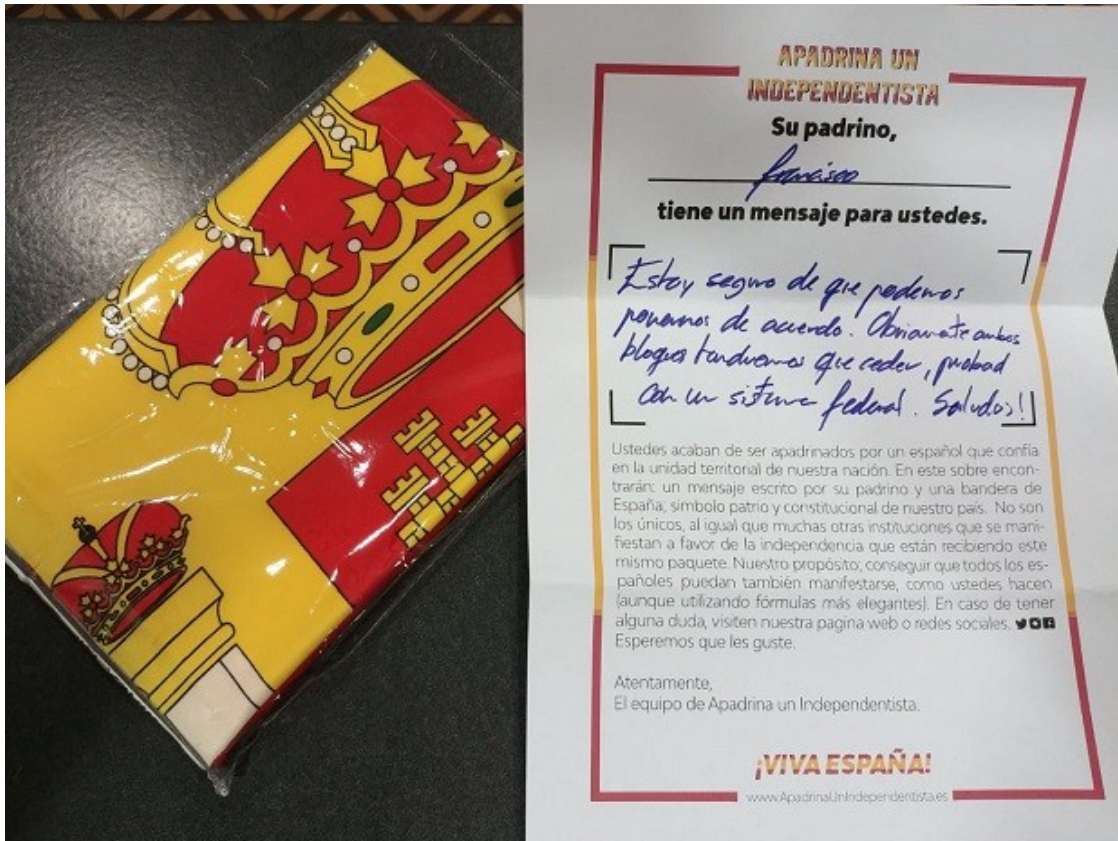 APADRINA UN
INDEPENDENTISTA
Su padrino,
francisco
tiene un mensaje para ustedes.
Estoy seguro de que podemos
ponernos de acuerdo. Obviamente ambos
bloques tendremos que ceder, probad
con un sistema federal. Saludos!
Ustedes acaban de ser apadrinados por un español que confía
en la unidad territorial de nuestra nación. En este sobre encon-
trarán: un mensaje escrito por su padrino y una bandera de
España, símbolo patrio y constitucional de nuestro país. No son
los únicos, al igual que muchas otras instituciones que se mani-
fiestan a favor de la independencia que están recibiendo este
mismo paquete. Nuestro propósito; conseguir que todos los es-
pañoles puedan también manifestarse, como ustedes hacen
(aunque utilizando fórmulas más elegantes). En caso de tener
alguna duda, visiten nuestra pagina web o redes sociales.
Esperemos que les guste.
Atentamente,
El equipo de Apadrina un Independentista.
¡VIVA ESPAÑA!
www.ApadrinaUnIndependentista.es